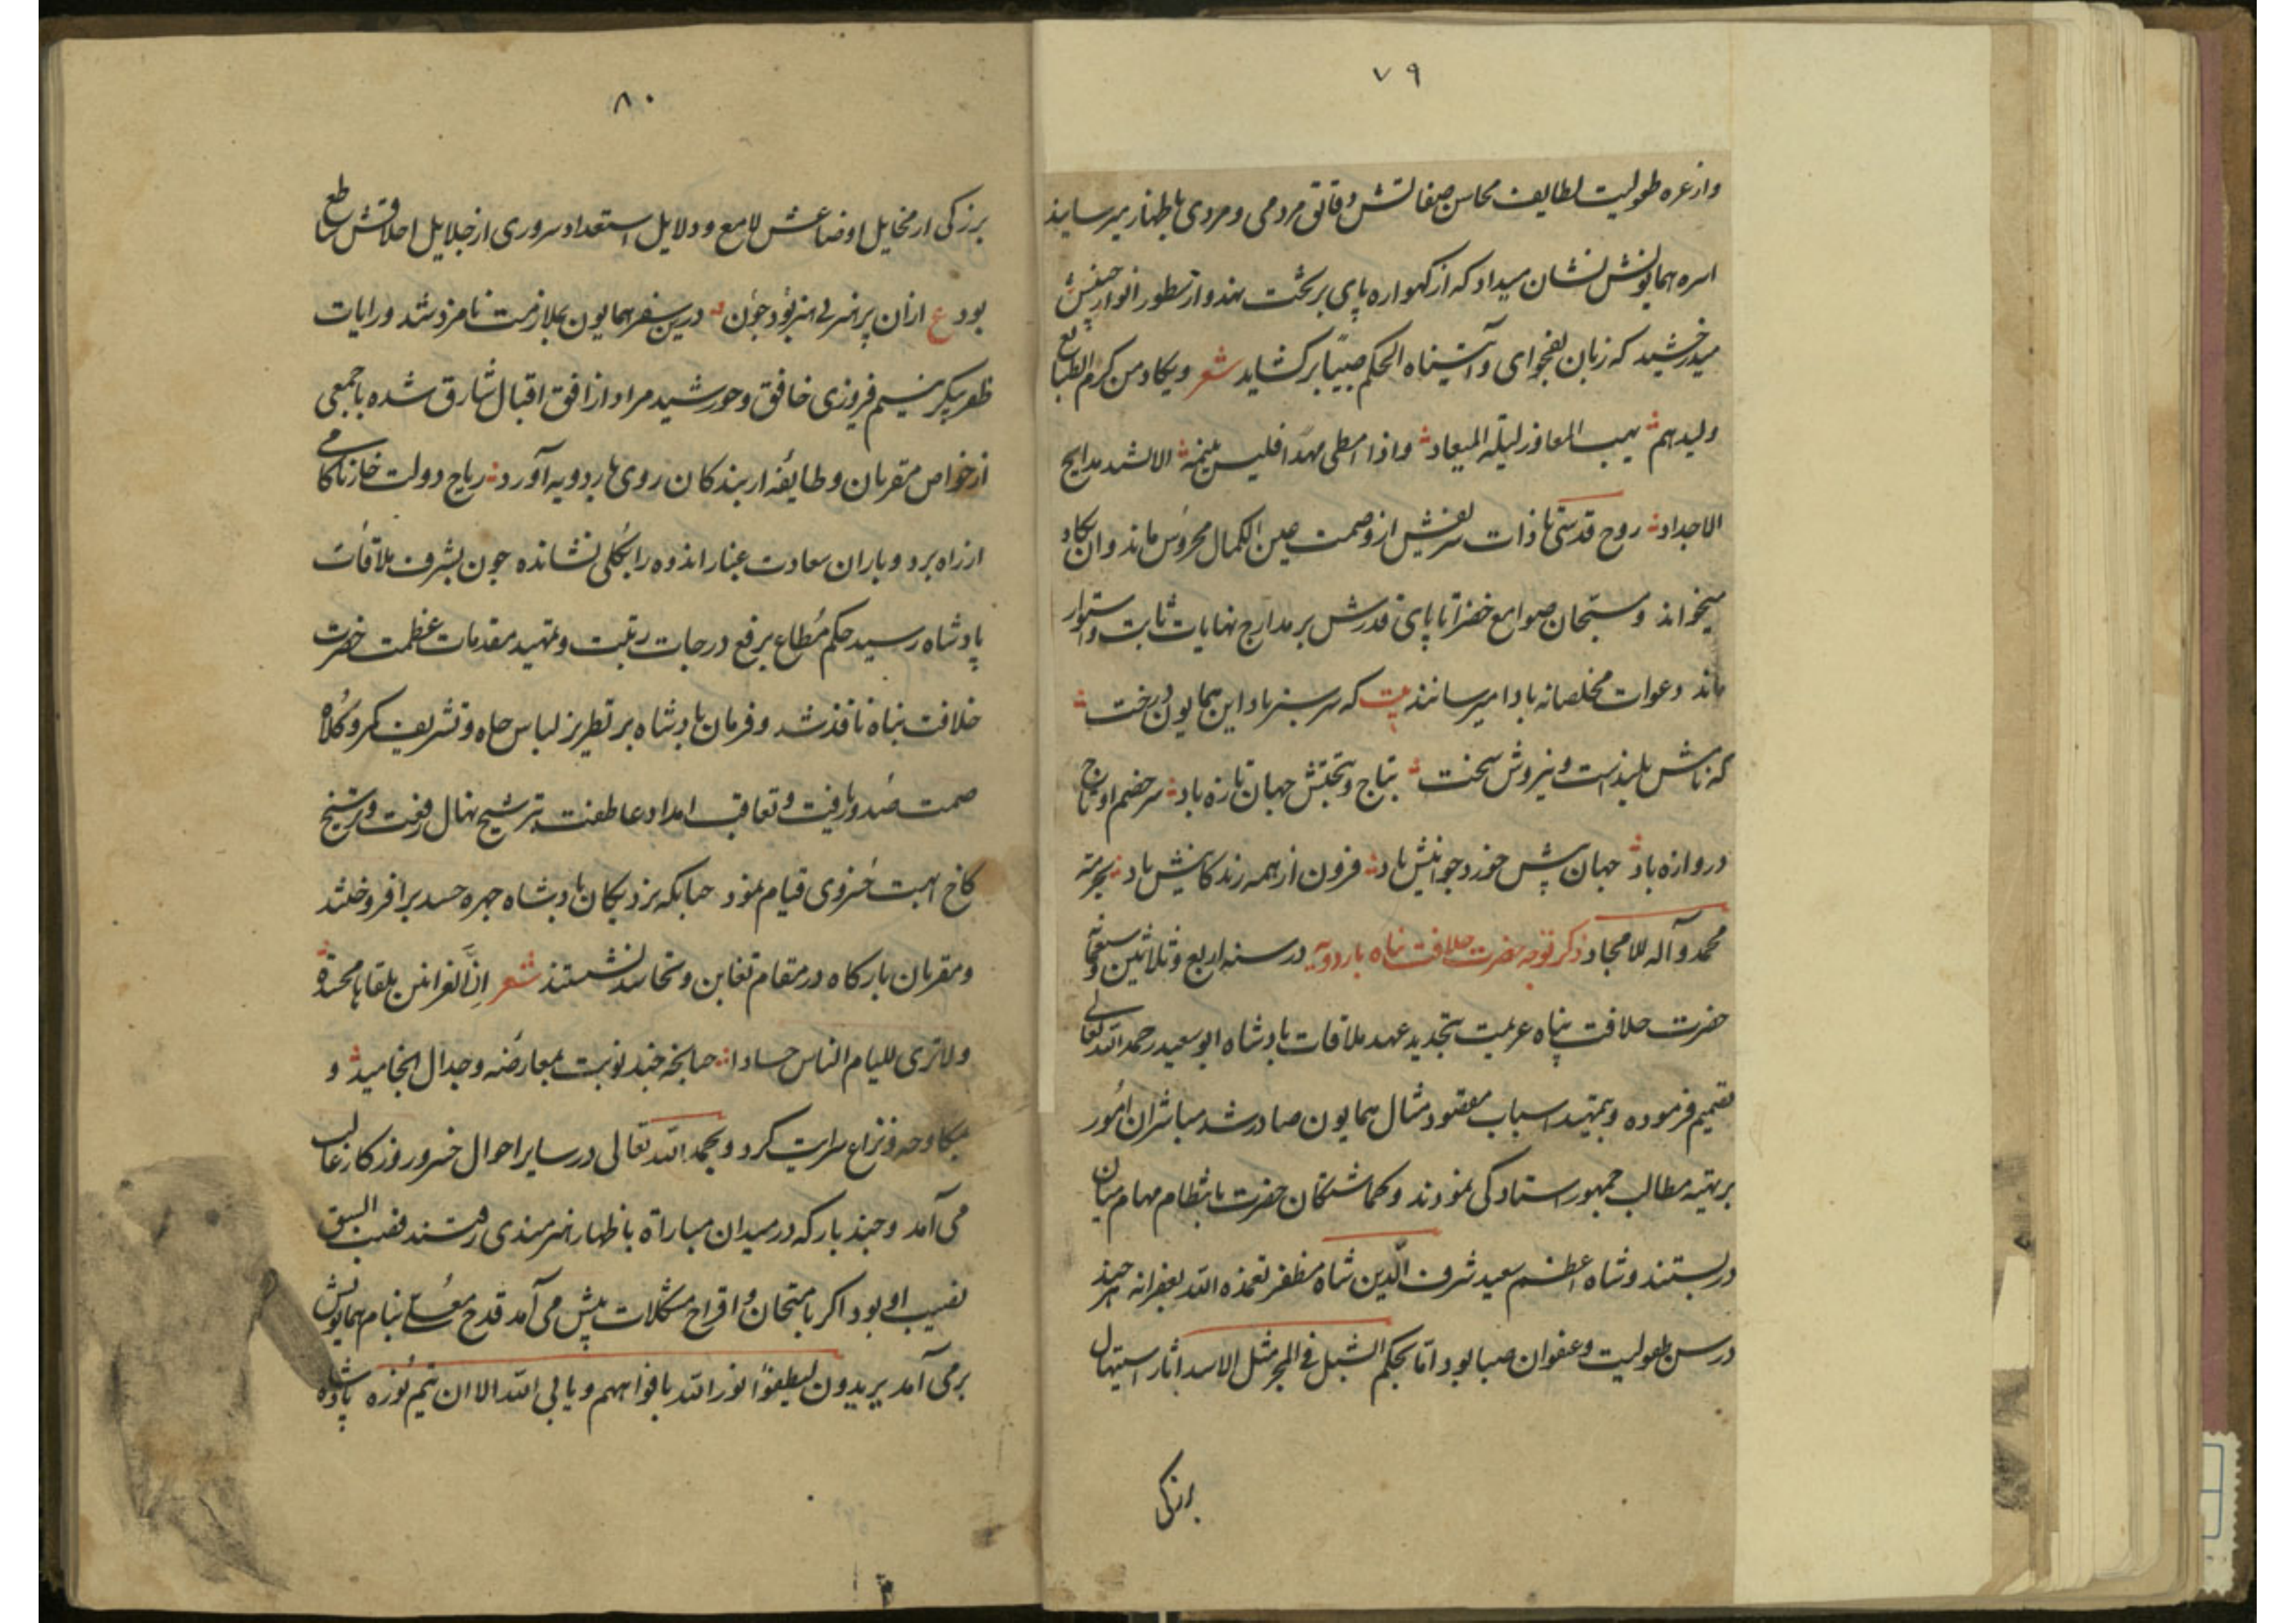 ۷۹
واز غره طفولیت لطایف محاسن صفاتش دقاتق مردمی و مردی باظهار میرساینذ
اسره همایونش نشان میداد که از کهواره پای بر تخت نهد و از سطور انوار جبینش
میدرخشید که زبان بفحوای وآتیناه الحکم صبیا برکشاید شعر ویکاد من کرم الطبایع
ولیدهم یهب المعاوز لیلة المیعاد واذا امطی مهدا فلیس ینیمه الا نشید مدایح
الاجداد روح قدسی تا ذات شریفش از وصمت عین الکمال محروس ماند وان یکاد
میخواند ومسبحان صوامع خضرا تا پای قدرش بر مدارج نهایات ثابت واستوار
ماند دعوات مخلصانه بادا میرسانند بیت که سرسبز باد این همایون درخت
که نامش بلیدنست و نیروش سخت بتاج و بتختش جهان تازه باد سر خصم او تاج
دروازه باد جهان پیش خورد جوانیش باد فزون از همه زندکانیش باد بحرمة
محمد وآله الامجاد ذکر توجه حضرت خلافت پناه باردویه در سنه اربع وثلاثین وسبعمائه
حضرت خلافت پناه عزیمت تجدید عهد ملاقات پادشاه ابوسعید رحمه الله تعالی
تصمیم فرموده وبتمهید اسباب مقصود مثال همایون صادر شد مباشران امور
برتهیه مطالب جمهور استادکی نمودند وکماشتکان حضرت بانتظام مهام میان
دربستند وشاه اعظم سعید شرف الدین شاه مظفر تغمذه الله بغفرانه هر چند
در سن طفولیت و عنفوان صبا بود اما بحکم الشبل فی المخبر مثل الاسد اثار استهال
بزرکی
۸۰
بزرکی از مخایل اوضاعش لامع و دلایل استعداد سروری از جلایل اخلاقش ساطع
بود ع ازان پر هنر بی هنر بود چون درین سفر همایون بملازمت نامزد شد ورایات
ظفرپیکر بنسیم فروزی خافق وخورشید مراد از افق اقبال شارق شده با جمعی
از خواص مقربان وطایفه از بندکان روی باردویه آورد ریاح دولت خار ناکامی
از راه برد و باران سعادت غبار اندوه را بکلی نشانده چون بشرف ملاقات
پادشاه رسید حکم مطاع برفع درجات رتبت وتمهید مقدمات عظمت حضرت
خلافت پناه نافذ شد و فرمان پادشاه بر تطریز لباس جاه و تشریف کمر و کلاه
صمت صدور یافت و تعاقب امداد عاطفت بترشیح نهال رفعت وترسیخ
کاخ ابهت خسروی قیام نمود چنانکه نزدیکان پادشاه چهره حسد برافروختند
ومقربان بارکاه در مقام تغابن و تحاسد نشستند شعر ان العرانین تلقاها محسدة
ولا تری للیام الناس حسادا چنانچه چند نوبت بمعارضه وجدال انجامید و
بمکاوحه ونزاع سرایت کرد و بحمد الله تعالی در سایر احوال خسرو روزکار غالب
می آمد و چند بار که در میدان مباراة باظهار هنرمندی رفتند قصب السبق
نصیب او بود اکر بامتحان و اقراح مشکلات پیش می آمد قدح معلی بنام همایونش
برمی آمد یریدون لیطفؤا نور الله بافواههم ویابی الله الا ان یتم نوره پادشاه